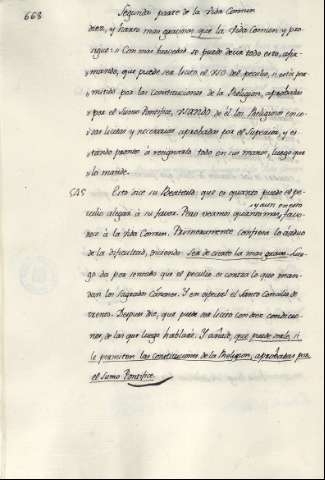 668
Segunda parte de la Vida Comun
dete, y harto mas gracioso que la Vida Comun, y pro-
sigue: Con mas brevedad se puede decir todo esto, afir-
mando, que puede ser licito el uso del peculio, si està per-
mitido por las Constituciones de la Religion, aprobadas
por el Sumo Pontifice, usando de èl los Religiosos en co-
sas licitas y necesarias aprobadas por el Superior, y es-
tando pronto à resignarlo todo en sus manos, luego que
lo mande.
545 Esto dice su Beatitud: que es quanto puede el pe-
y aun en esto
culio alegar à su favor. Pero veamos quanto mas favo-
rece à la Vida Comun. Primeramente confiesa lo arduo
de la dificultad, diciendo: Sea de creato la mas grave. Lue-
go da por sentado que el peculio es contra lo que man-
dan los Sagrados Cánones. Y en especial el Santo Concilio de
Trento. Despues dice, que puede ser licito con diez condicio-
nes, de las que luego hablarè. Y añade, que puede serlo, si
le permiten las constituciones de la Religion, aprobadas por
el Sumo Pontifice.